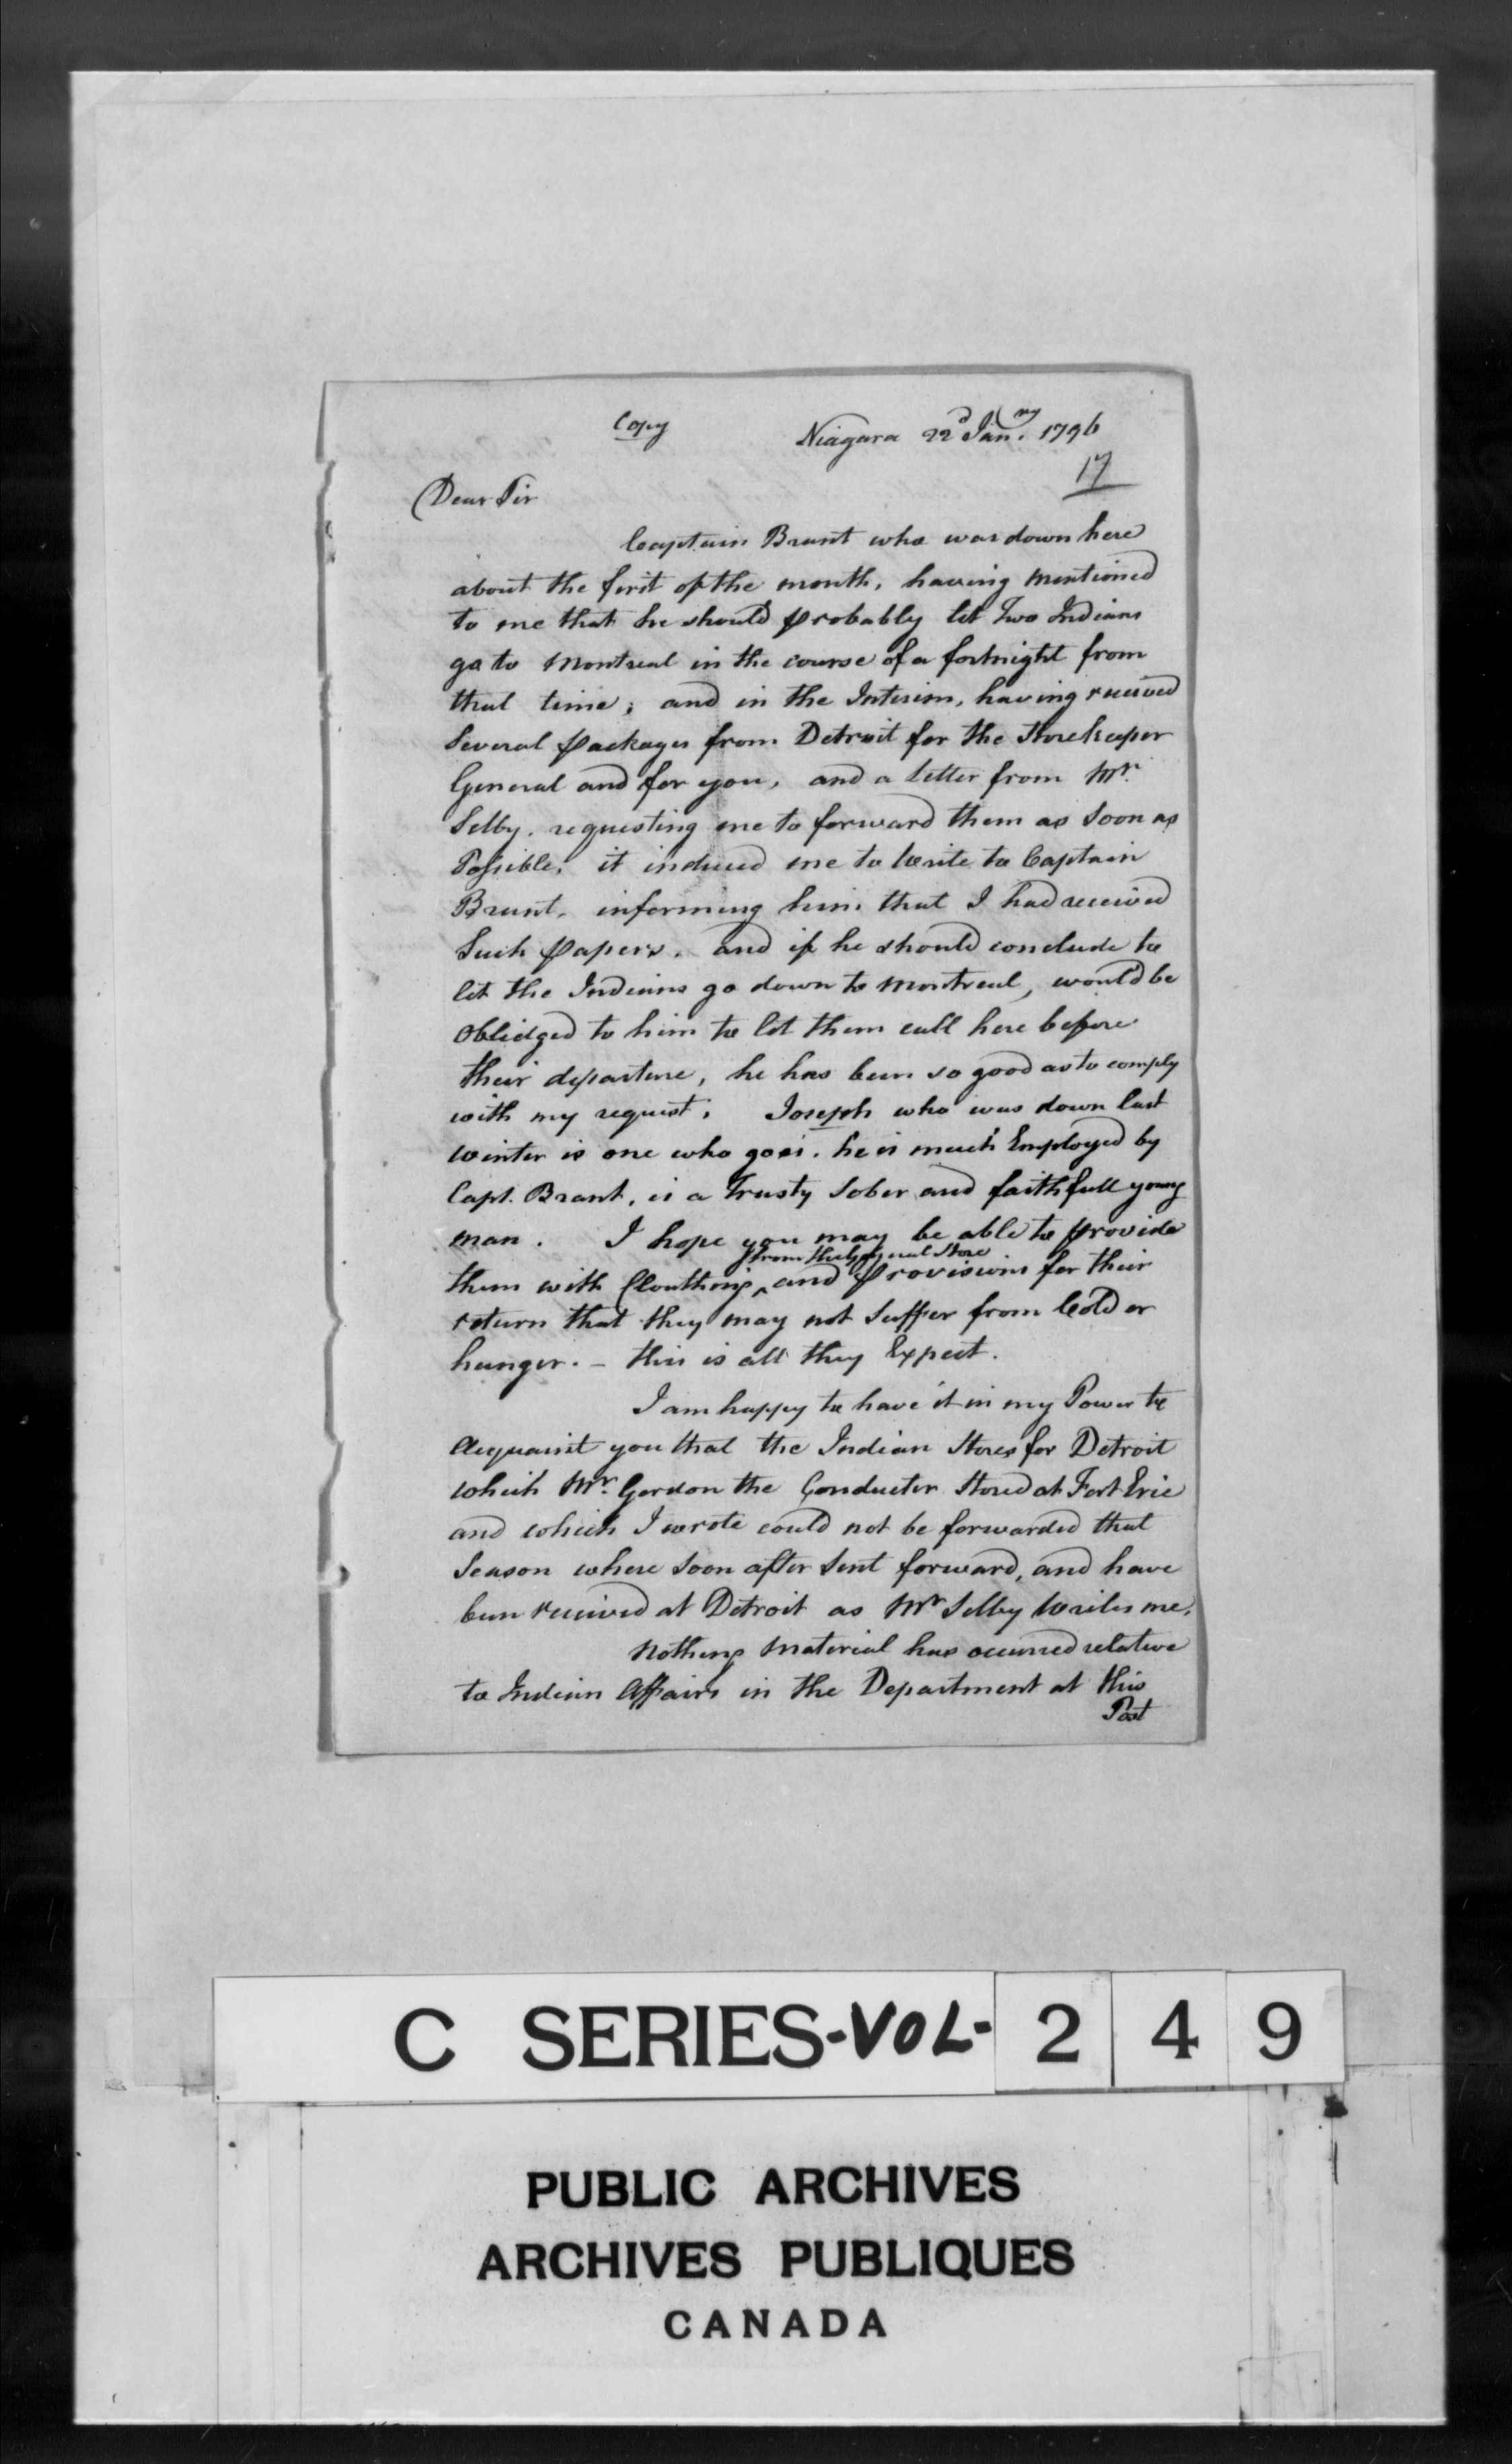 Copy
Niagara 22d Janry. 1796
17
Dear Sir
Captain Brant who was down here
about the first of the month, having mentioned
to me that he should probably let Two Indians
go to Montreal in the course of a fortnight from
that time; and in the Interim, having received
Several packages from Detroit for the Storekeeper
General and for you, and a letter from Mr.
Selby, requesting me to forward them as Soon as
Possible; it induced me to Write to Captain
Brant, informing him that I had received
Such papers, and if he should conclude to
let the Indians go down to Montreal, would be
Oblidged to him to let them call here before
their departure, he has been so good as to comply
with my request; Joseph who was down last
Winter is one who goes. he is much Employed by
Capt. Brant, is a Trusty Sober and faithfull young
man. I hope you may be able to provide
from the General Store
them with Clouthing ^ and provisions for their
return that they may not Suffer from Cold or
hunger. – this is all they Expect.
I am happy to have it in my Power to
Acquaint you that the Indian Stores for Detroit
which Mr. Gordon the Conductor Stored at Fort Erie
and which I wrote could not be forwarded that
Season where Soon after Sent forward, and have
been received at Detroit as Mr Selby Writes me.
Nothing Material has occurred relative
to Indian Affairs in the Department at this
Post
C SERIES-VOL-249
PUBLIC ARCHIVES
ARCHIVES PUBLIQUES
CANADA